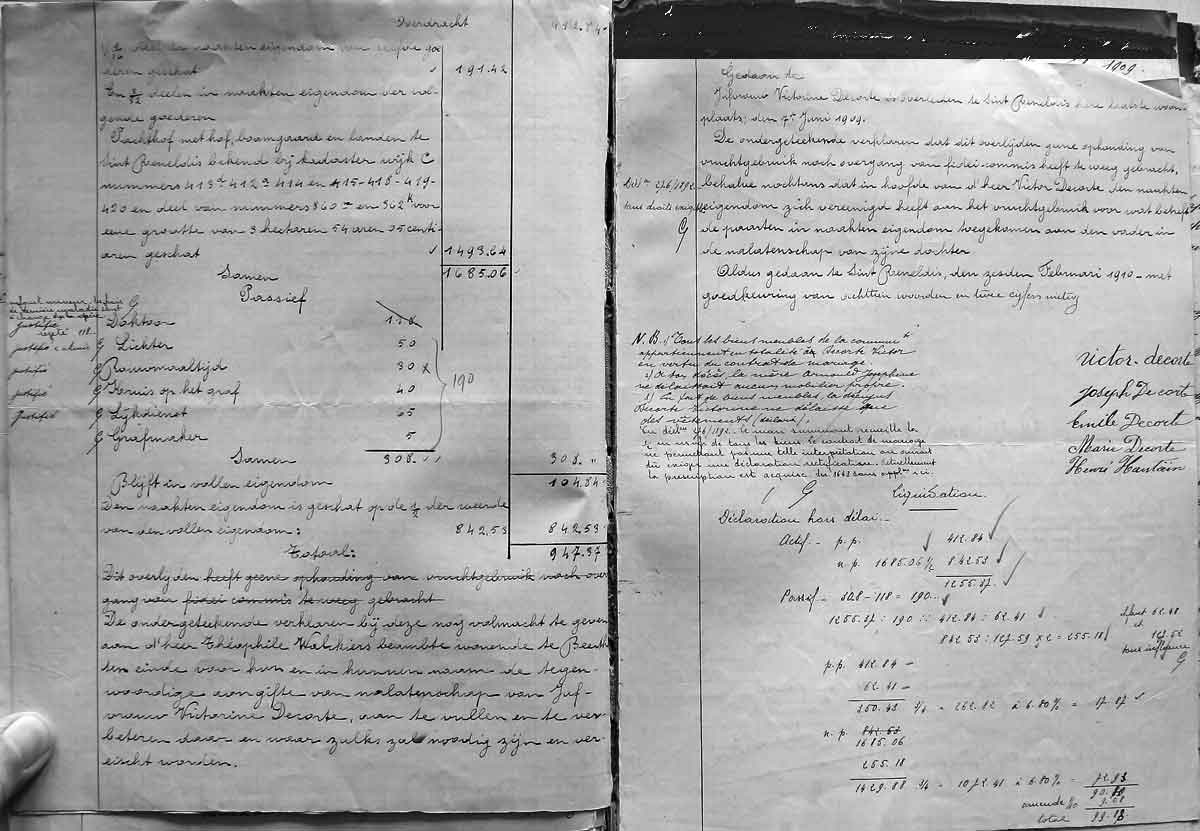 Overdracht
deel in naakten eigendom van zelfde goe
deren geschat 191.42
En 3/32 deelen in naakten eigendom der vol-
gende goederen
Pachthof met hof, boomgaard en landen te
Sint Reneldis bekend bij kadaster wijk C
nummers 413 412 414 en 415-418-419-
420 en deel van nummers 360 en 362k voor
eene grootte van 3 hectaren 54 aren 35 centi-
aren geschat 1493.64
Samen 1685.06
Passief
Doktoor 118
Lichter 50
Rouwmaaltijd 30
justifié
Kruis op het graf 40
justifié
Lijkdienst 65
justifié
Grafmaker 5
190
Samen 308. 308.
Blijft in vollen eigendom 104.84
Den naakten eigendom is geschat op de 1/2 der weerde
van den vollen eigendom: 842,53 842.53
Totaal: 947.37
Dit overlijden heeft geene ophouding van vruchtgebruik noch over
gang van fidei commis te weeg gebracht
De ondergeteekende verklaren bij deze nog volmacht te geven
aan d'heer Théophile Walckiers beambte wonende te
ten einde voor hun en in hunnen naam de tegen-
woordige aangifte van nalatenschap van Juf-
vrouw Victorine Decorte, aan te vullen en te ver
beteren daar en waar zulks zal noodig zijn en ver
eischt worden.
1909.
Gedaan te
Jufvrouw Victorine Decorte is overleden te Sint Reneldis hare laatste woon
plaats, den 7n Juni 1909.
De ondergeteekende verklaren dat dit overlijden geene ophouding van
vruchtgebruik noch overgang van fidei-commis heeft te weeg gebracht,
behalve nochtens dat in hoofde van d'heer Victor Decorte den naakten
eigendom zich vereenigd heeft aan het vruchtgebruik voor wat betreft
de paarten in naakten eigendom toegekomen aan den vader in
de nalatenschap van zijne dochter
Aldus gedaan te Sint Reneldis, den zesden Februari 1910 - met
goedkeuring van achttien woorden en twee cyfers nietig
N.B. 1) Tous les biens meubles de la commun té
appartiennent en totalité à Decorte Victor
en vertu du contrat de mariage
2) A son décès, la mère Arnould Joséphine
ne délaissait aucun mobilier propre.
3) En fait de biens meubles, la défunte
Decorte Victorine ne délaisse que
des vêtements
ne permettant pas une telle interprétation on aurait
dû exiger une déclaration rectificative. actuellement
la prescription est acquise
victor. decorte
Joseph Decorte
Emile Decorte
Marie Decorte
Henri Hantain
Liquidation.
Déclaration hors délai.
Actif - p.p. 412.84
n.p. 1685.06/2 842.53
1255.37
Passif - 308 - 118 = 190.
1255.37 : 190 :: 412.84 : 62.41
842.53 : 127.59 x 2 = 255.18
p.p. 412.84 -
62.41 -
350.43 = 262.82 à 6.80% = 17.87
n.p. 842.53
1685.06
255.18
1429.88 = 1072.41 à 6.80% = 72.93
amende
total